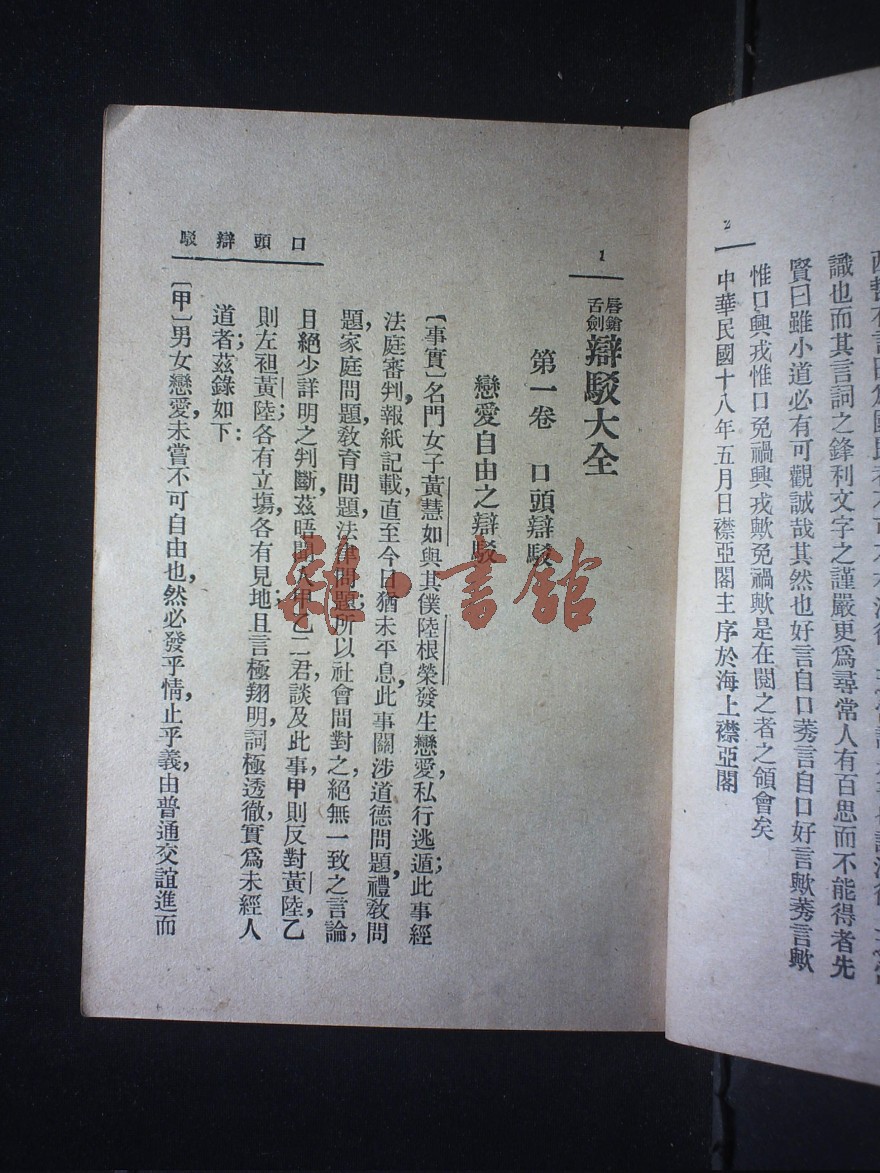 2
識也而其言詞之鋒利文字之謹嚴更爲尋常人有百思而不能得者先
賢曰雖小道必有可觀誠哉其然也好言自口莠言自口好言歟莠言歟
惟口興戎惟口免禍興戎歟免禍歟是在閱之者之領會矣
中華民國十八年五月日襟亞閣主序於海上襟亞閣
1
唇鎗舌劍辯駁大全
第一卷 口頭辯駁
戀愛自由之辯駁
〔事實〕名門女子黃慧如與其僕陸根榮發生戀愛，私行逃遁；此事經
法庭審判，報紙記載，直至今日，猶未平息，此事關涉道德問題，禮敎問
題，家庭問題，敎育問題，法律問題；所以社會間對之，絕無一致之言論，
且絕少詳明之判斷，茲晤聞人甲乙二君，談及此事，甲則反對黃陸，乙
則左袒黃陸；各有立塲，各有見地；且言極翔明，詞極透徹，實爲未經人
道者；茲錄如下：
〔甲〕男女戀愛，未嘗不可自由也，然必發乎情，止乎義，由普通交誼進而
口頭辯駁
雜·書館